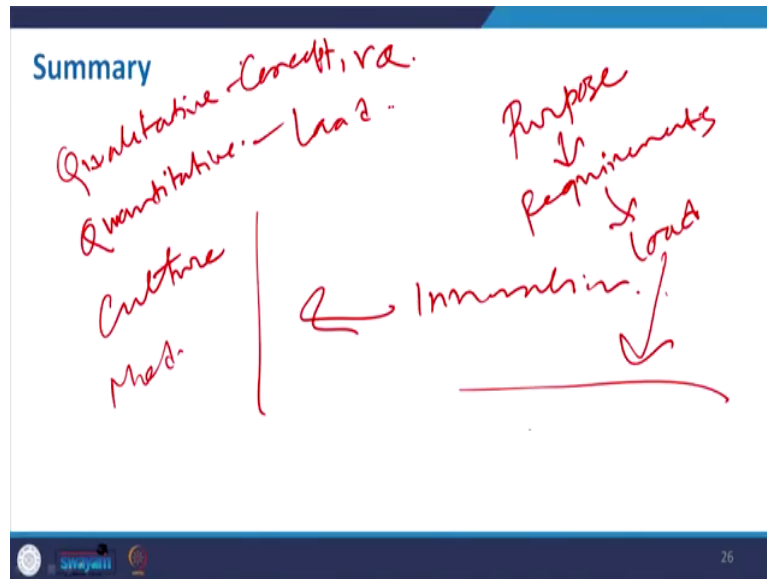 Summary
Qualitative - Concept, va.
Quantitative. - Load.
Culture
Med.
Purpose
Requirements
Load
swayam
26